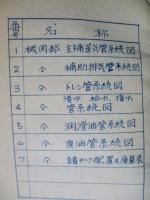 番号 名 称
1 機関部 主補蒸気管系統図
2 〃 補助排気管系統図
3 〃 ドレン管系統図
4 〃 清水 給水 復水
管系統図
5 〃 潤滑油管系統図
6 〃 重油管系統図
7 〃 諸タンク配置及容量表